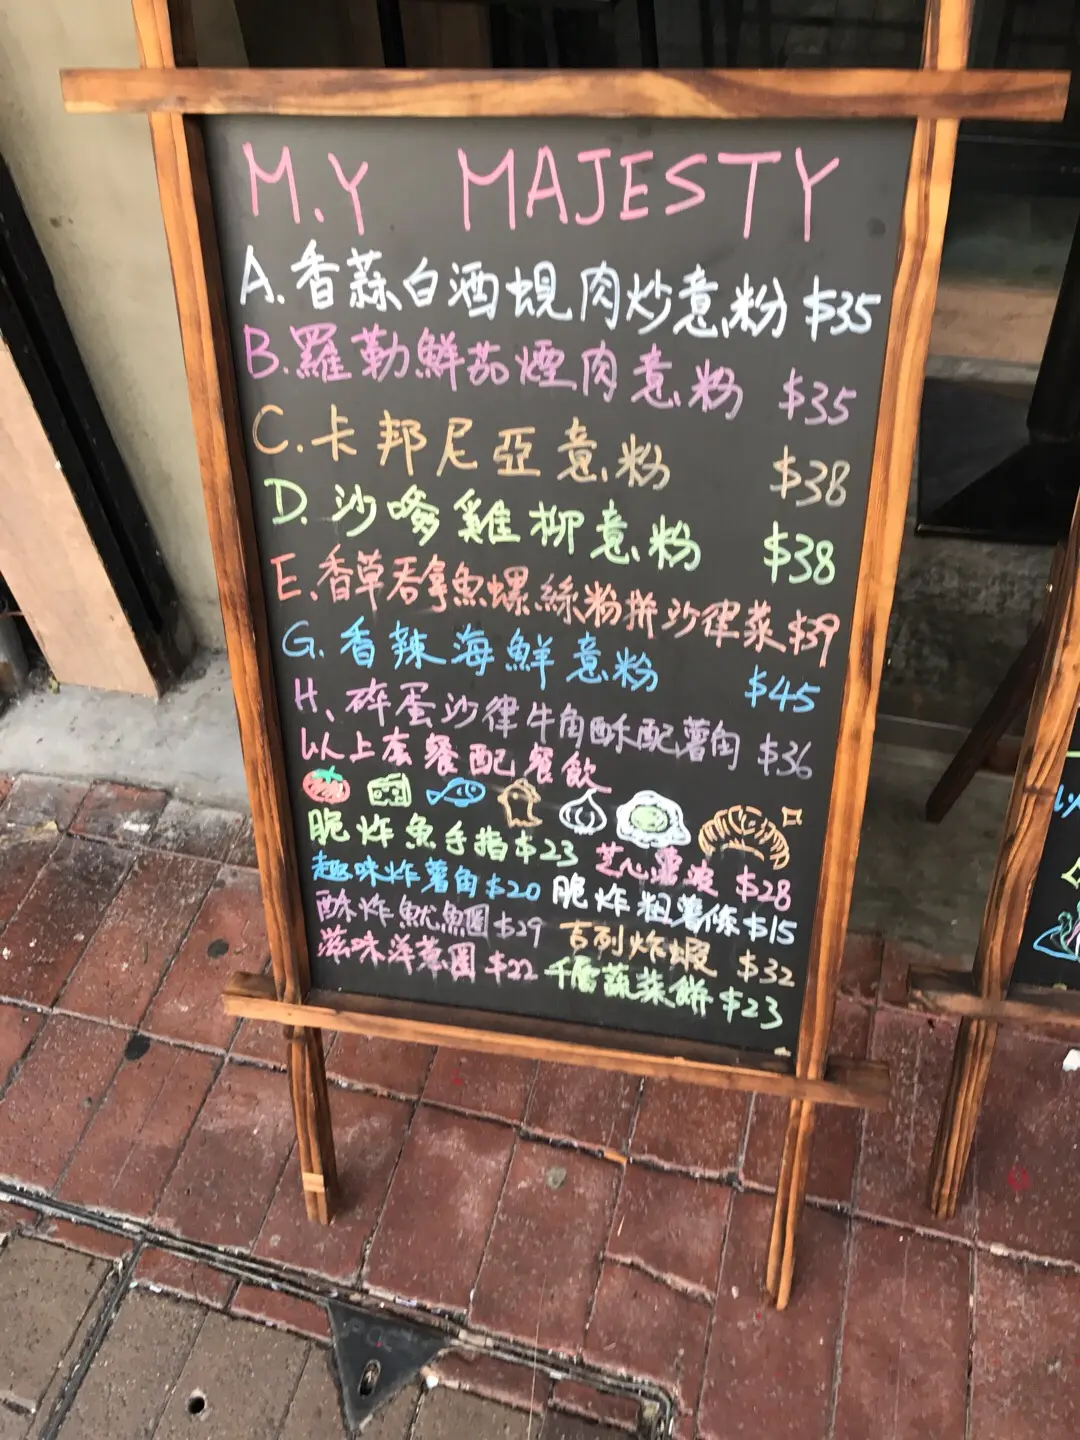 M.Y MAJESTY
A.香蒜白酒蜆肉炒意粉 $35
B.羅勒鮮茄煙肉意粉 $35
C.卡邦尼亞意粉 $38
D.沙嗲雞柳意粉 $38
E.香草吞拿魚螺絲粉拼沙律菜 $39
G.香辣海鮮意粉 $45
H、碎蛋沙律牛角酥配薯角 $36
以上套餐配餐飲
脆炸魚手指 $23 芝心薯波 $28
趣味炸薯角 $20 脆炸粗薯條 $15
酥炸魷魚圈 $29 吉列炸蝦 $32
滋味洋蔥圈 $22 千層蔬菜餅 $23